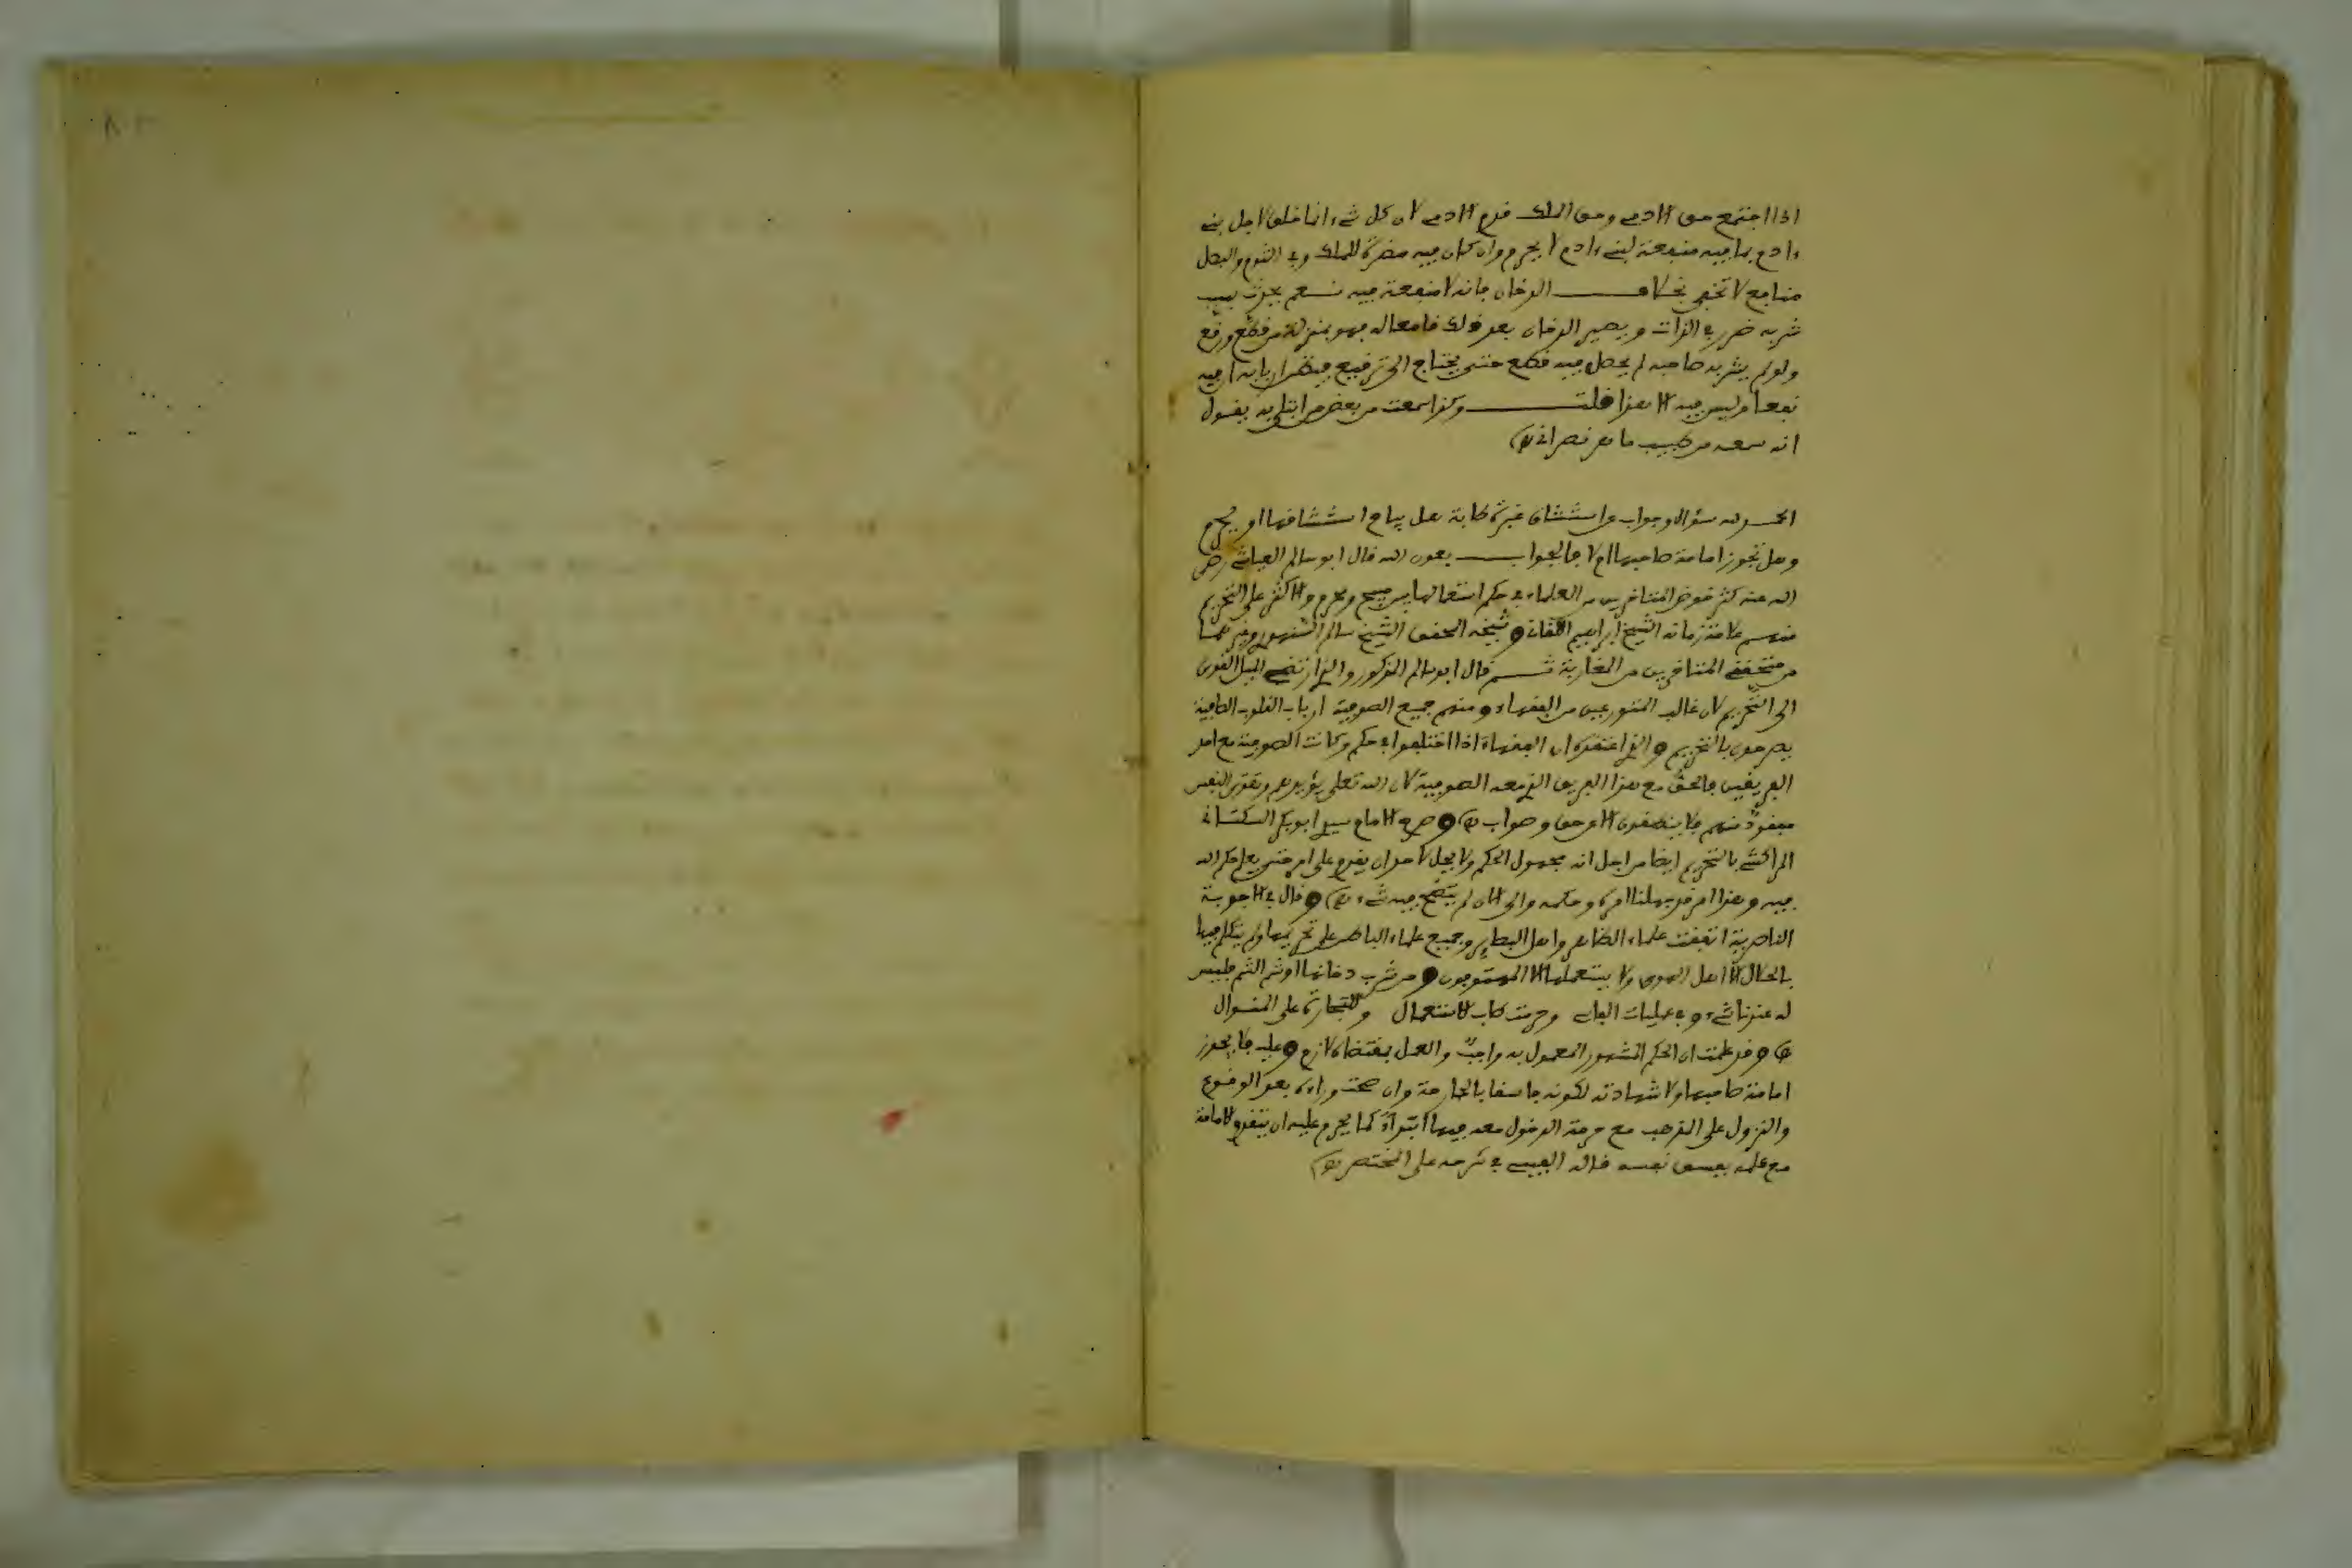 اذا اجتمع حق الادمي وحق الملك قدم الادمي لان كل شيء انما خلق لاجل بني
ءادم بما فيه منفعة لبني ءادم لا يحرم وان كان فيه مضرة للملك وفي الثوم والبصل
منافع لا تخفى بخلاف الدخان فانه لا منفعة فيه نعم يحدث بسبب
شربه ضرر في الذات ويصير الدخان بعد ذلك قامعا له فهو بمنزلة من قطع ورقع
ولو لم يشربه صاحبه لم يحصل فيه قطع حتى يحتاج الى ترقيع فيظن اربابه ان فيه
نفعا وليس فيه الا هذا قلت وكذا سمعت من بعض من ابتلي به يقول
انه سمعه من طبيب ماهر نصراني اه
الحمد لله سؤال وجواب عن استنشاق غبرة طابة هل يباح استنشاقها او يحرم
وهل تجوز امامة صاحبها ام لا فالجواب بعون الله قال ابو سالم العياشي رضي
الله عنه كثر خوض المتاخرين من العلماء في حكم استعمالها بين مبيح ومحرم والاكثر على التحريم
منهم علامة زمانه الشيخ ابراهيم اللقاني وشيخه المحقق الشيخ سالم السنهوري وغيرهما
من محققي المتاخرين من المغاربة ثم قال ابو سالم المذكور والذي ارتضيه الميل القوي
الى التحريم لان غالب المتورعين من الفقهاء ومنهم جميع الصوفية ارباب القلوب الصافية
يصرحون بالتحريم والذي اعتقده ان الفقهاء اذا اختلفوا في حكم وكانت الصوفية مع احد
الفريقين فالحق مع هذا الفريق الذي معه الصوفية لان الله تعلى يؤيدهم وتقوى النفس
مفقودة منهم فلا ينطقون الا عن حق وصواب اه وصرح الامام سيدي ابو بكر السكتاني
المراكشي بالتحريم ايضا من اجل انه مجهول الحكم ولا يحل لاحد ان يقدم على امر حتى يعلم حكم الله
فيه وهذا امر قد جهلنا امره وحكمه والى الان لم يتضح فيه شيء اه وقال في الاجوبة
الناصرية اتفقت علماء الظاهر واهل البصاير وجميع علماء الباطن على تحريمها ولم يتكلم فيها
بالحلال الا اهل الهوى ولا يستعملها الا المهتوفون ومن شرب دخانها او شم الشم فليس
له عندنا شيء وفي عمليات الفاسي وحرمت طاب للاستعمال وللتجارة على المنوال
اه وقد علمت ان الحكم المشهور المعمول به واجب والعمل بمقتضاه لازم وعليه فلا يجوز
امامة صاحبها ولا شهادته لكونه فاسقا بالجارحة وان صحت وراءه بعد الوقوع
والنزول على المذهب مع حرمة الدخول معه فيها ابتداء كما يحرم عليه ان يتقدم للامامة
مع علمه بفسق نفسه قاله القيسي في شرحه على المختصر اه